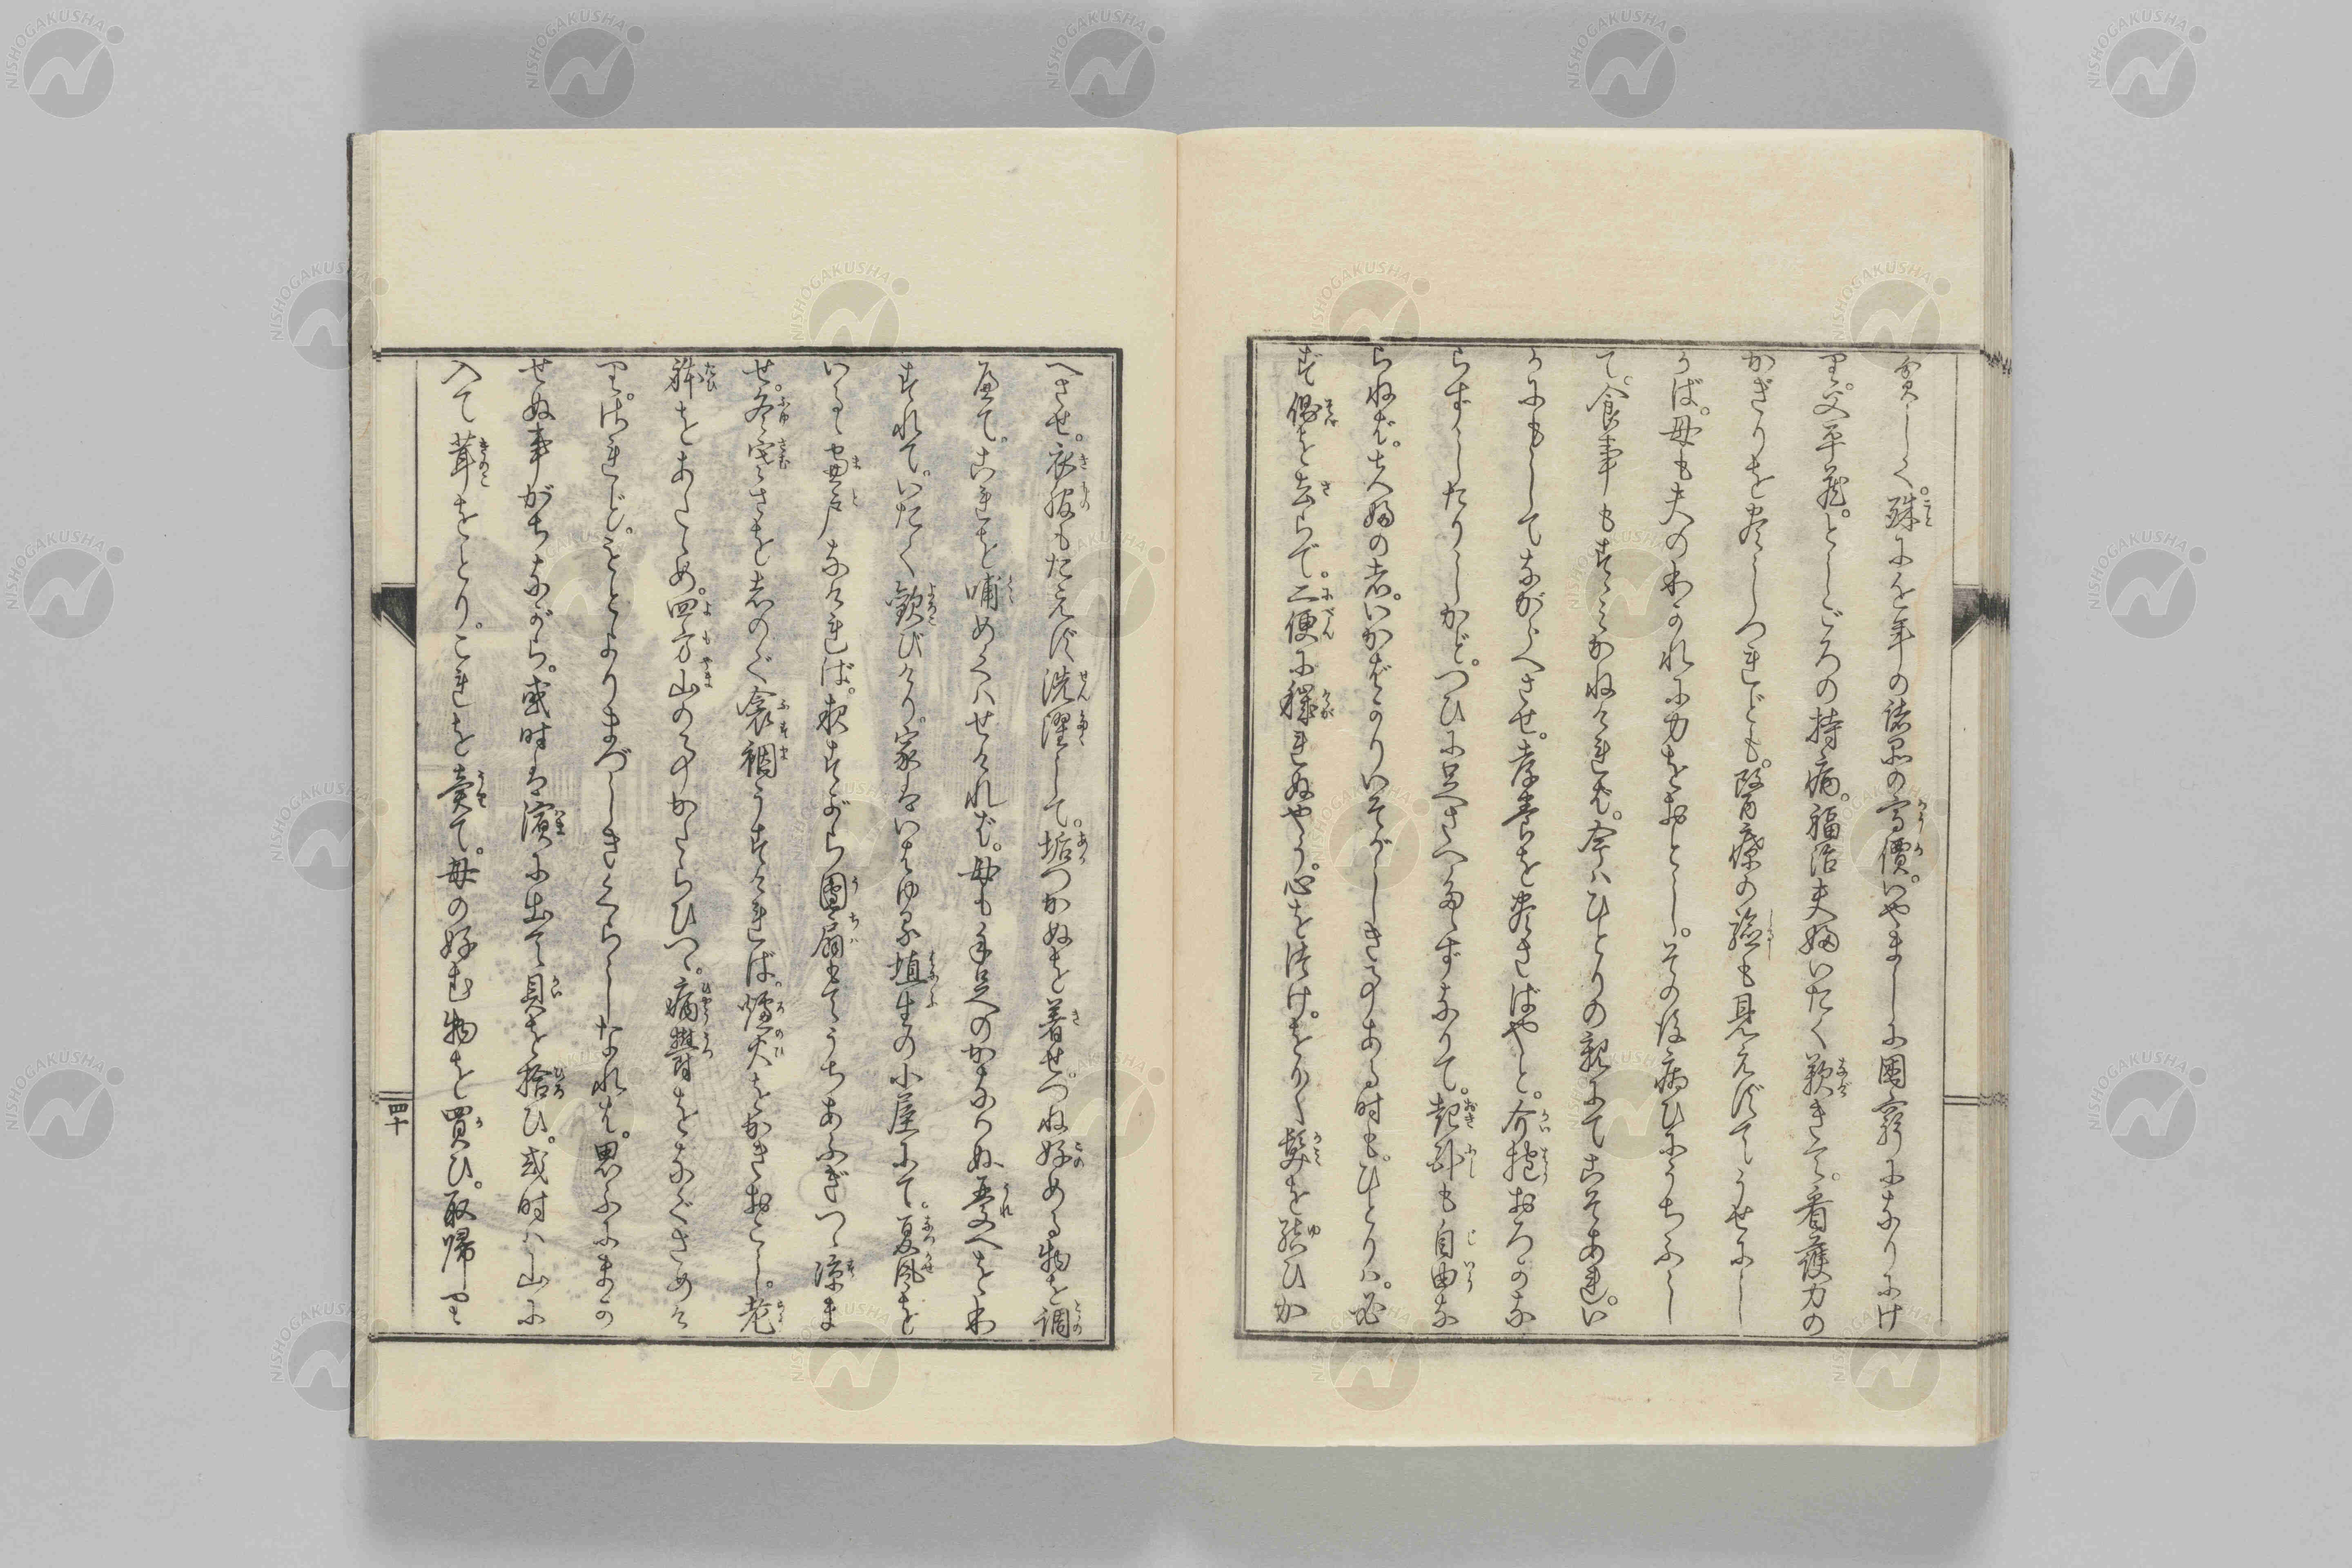 貧しく。殊に近年の諸品の高價。いやましに困窮になりにけ
り。父平蔵。としごろの持病。福治夫婦いたく歎きて。看護力の
かぎりを尽しつれども。醫療の驗も見えずてうせにし
かば。母も夫のわかれに力をおとし。その後病ひにうちふし
て。食事もすゝみかねければ。今ハひとりの親にてこそあれ。い
かにもしてながらへさせ。孝養を尽さばやと。介抱おろかな
らずしたりしかど。つひに足さへたゝずなりて。起卧も自由な
らねば。夫婦の者。いかばかりいそがしき事ある時も。ひとりハ。必
ず傍を去らで。二便に穢れぬやう。心を附け。をり〱髪を結ひか
へさせ。衣服もたえず洗濯して。垢つかぬを著せ。つね好める物を調
へて。これを哺めくハせければ。母も手足のかなハぬ吾へをわ
すれて。いたく歡びけり。家はいはゆる埴生の小屋にて。夏風を
いるゝ窓戸なければ。夜すがら團扇もてうちあふぎつゝ涼ま
せ。冬寒さをしのぐ衾裯うすければ。爐火をかきおこし。老
躰をあたゝめ。四方山の事かたらひつゝ。病鬱をなぐさめけ
り。されど。もとよりまづしきくらしなれば。思ふにまか
せぬ事がちながら。或時は濱に出て貝を拾ひ。或時ハ山に
入て茸をとり。これを賣て。母の好む物を買ひ。取帰り
四十
NISHOGAKUSHA